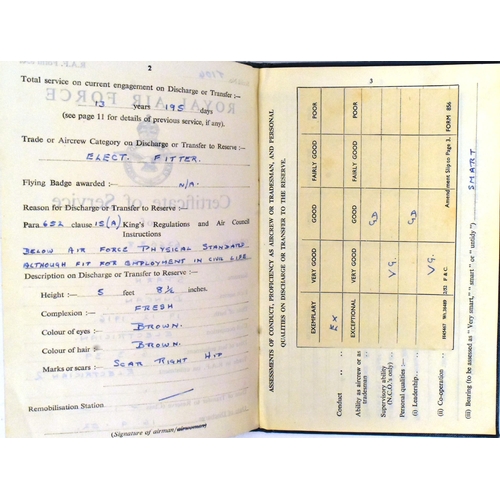 2
Total service on current engagement on Discharge or Transfer :—
13 years 195 days
(see page 11 for details of previous service, if any).
Trade or Aircrew Category on Discharge or Transfer to Reserve :—
ELECT. FITTER.
Flying Badge awarded :— N/A.
Reason for Discharge or Transfer to Reserve :—
Para. 652 clause 15(A) King's Regulations and Air Council Instructions
BELOW AIR FORCE PHYSICAL STANDARD
ALTHOUGH FIT FOR EMPLOYMENT IN CIVIL LIFE.
Description on Discharge or Transfer to Reserve :—
Height :— 5 feet 8½ inches.
Complexion :— FRESH
Colour of eyes :— BROWN.
Colour of hair :— BROWN.
Marks or scars :— SCAR RIGHT HIP
Remobilisation Station
(Signature of airman/airwoman)
3
ASSESSMENTS OF CONDUCT, PROFICIENCY AS AIRCREW OR TRADESMAN, AND PERSONAL
QUALITIES ON DISCHARGE OR TRANSFER TO THE RESERVE.
EXEMPLARY VERY GOOD GOOD FAIRLY GOOD POOR
Conduct .. EX
EXCEPTIONAL VERY GOOD GOOD FAIRLY GOOD POOR
Ability as aircrew or as tradesman .. GD
Supervisory ability (N.C.O.'s only) .. VG.
Personal qualities :—
(i) Leadership.. GD
(ii) Co-operation .. VG.
Amendment Slip to Page 3. FORM 856
(iii) Bearing (to be assessed as "Very smart," "smart" or "untidy") SMART